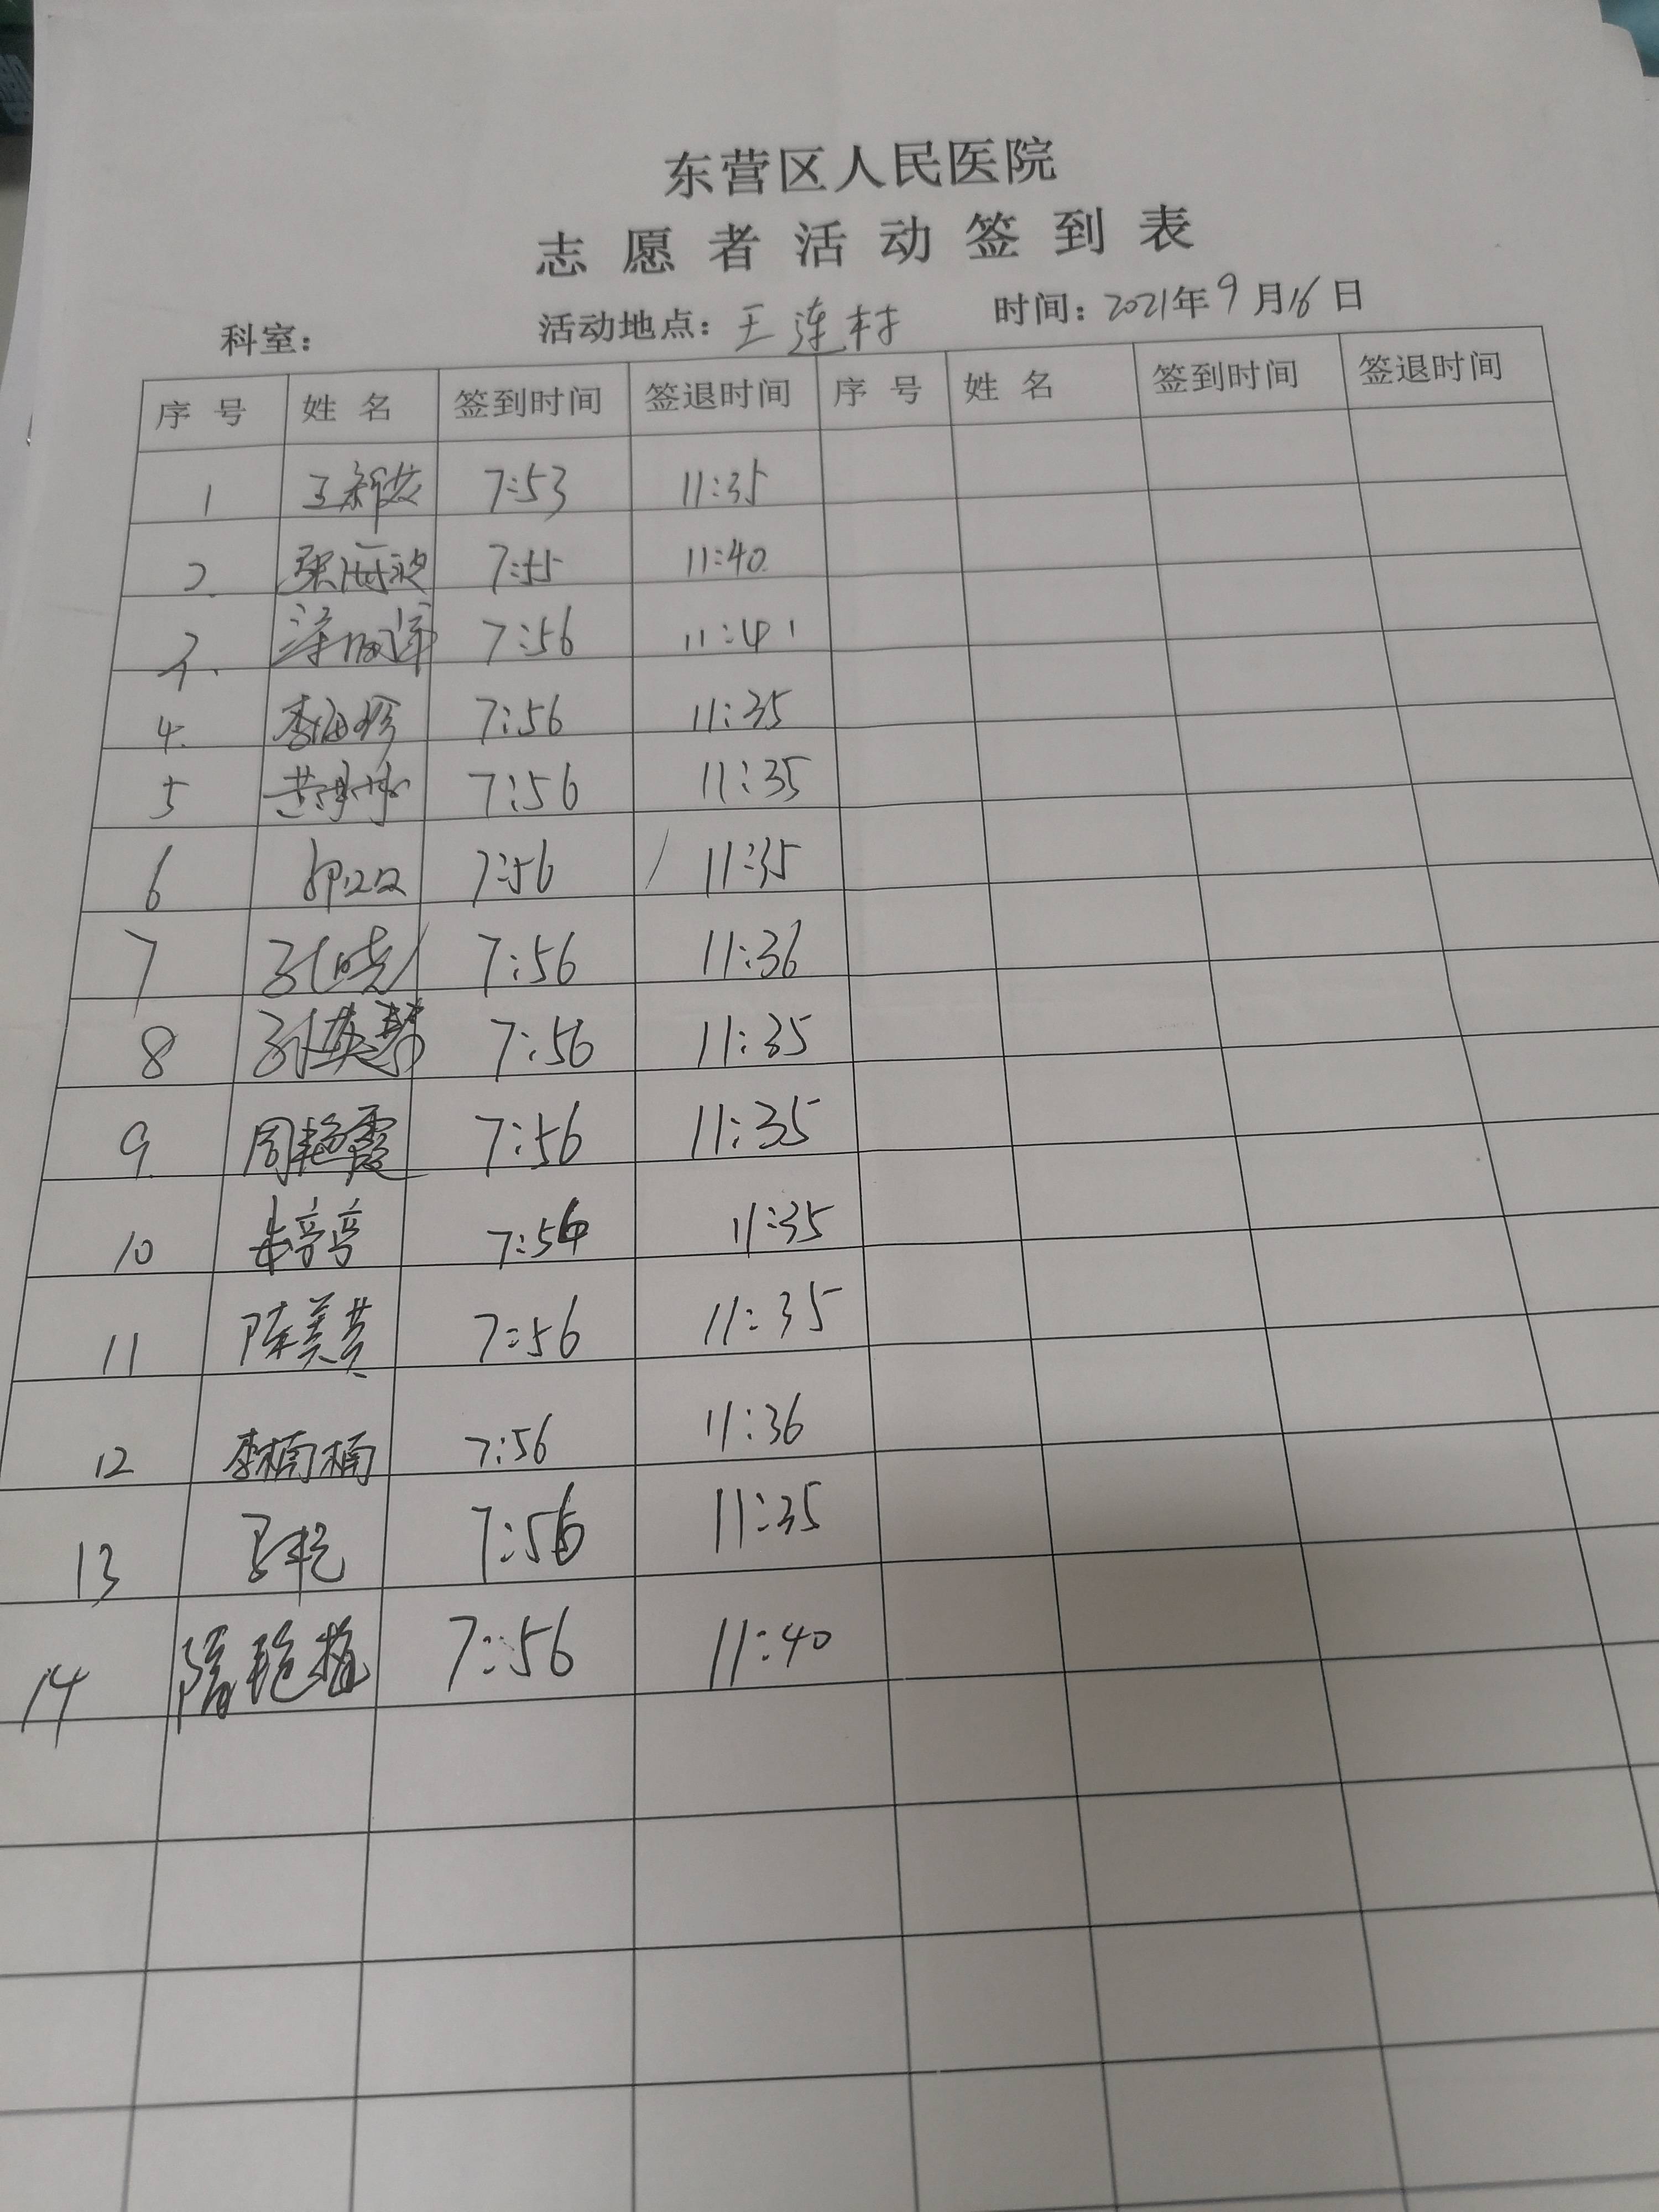 东营区人民医院
志愿者活动签到表
科室： 活动地点：王连村 时间：2021年9月16日
序号 姓名 签到时间 签退时间 序号 姓名 签到时间 签退时间
1 7:53 11:35
2. 7:55 11:40
3. 7:56 11:41
4. 李海珍 7:56 11:35
5 7:56 11:35
6 7:56 11:35
7 孙晓 7:56 11:36
8 孙英慧 7:56 11:35
9. 周艳霞 7:56 11:35
10 朱亭亭 7:56 11:35
11 陈美英 7:56 11:35
12 李楠楠 7:56 11:36
13 马艳 7:56 11:35
14 隋艳梅 7:56 11:40